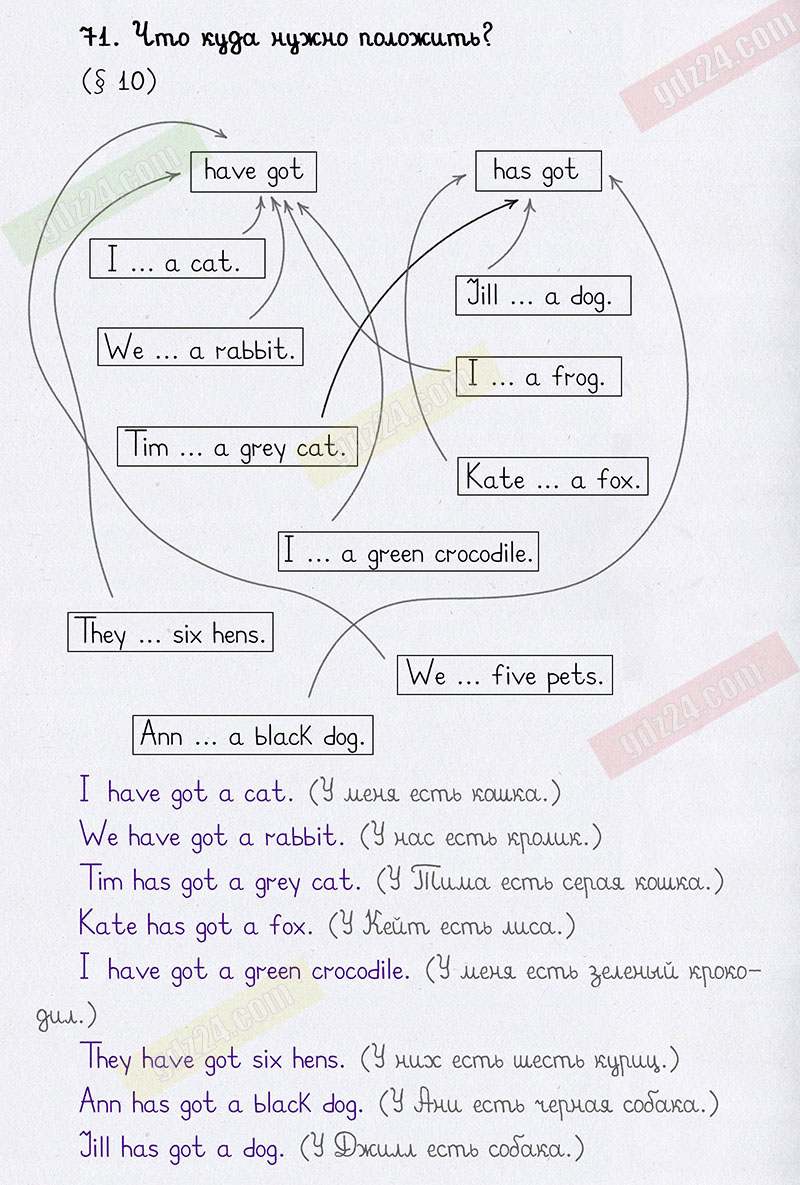 71. Что куда нужно положить?
(§ 10)
gdz24.com
gdz24.com
have got
has got
I ... a cat.
Jill ... a dog.
We ... a rabbit.
I ... a frog.
gdz24.com
Tim ... a grey cat.
Kate ... a fox.
I ... a green crocodile.
They ... six hens.
We ... five pets.
gdz24.com
Ann ... a black dog.
I have got a cat. (У меня есть кошка.)
We have got a rabbit. (У нас есть кролик.)
Tim has got a grey cat. (У Тима есть серая кошка.)
Kate has got a fox. (У Кейт есть лиса.)
I have got a green crocodile. (У меня есть зеленый кроко-
дил.)
gdz24.com
They have got six hens. (У них есть шесть куриц.)
Ann has got a black dog. (У Ани есть черная собака.)
Jill has got a dog. (У Джилл есть собака.)